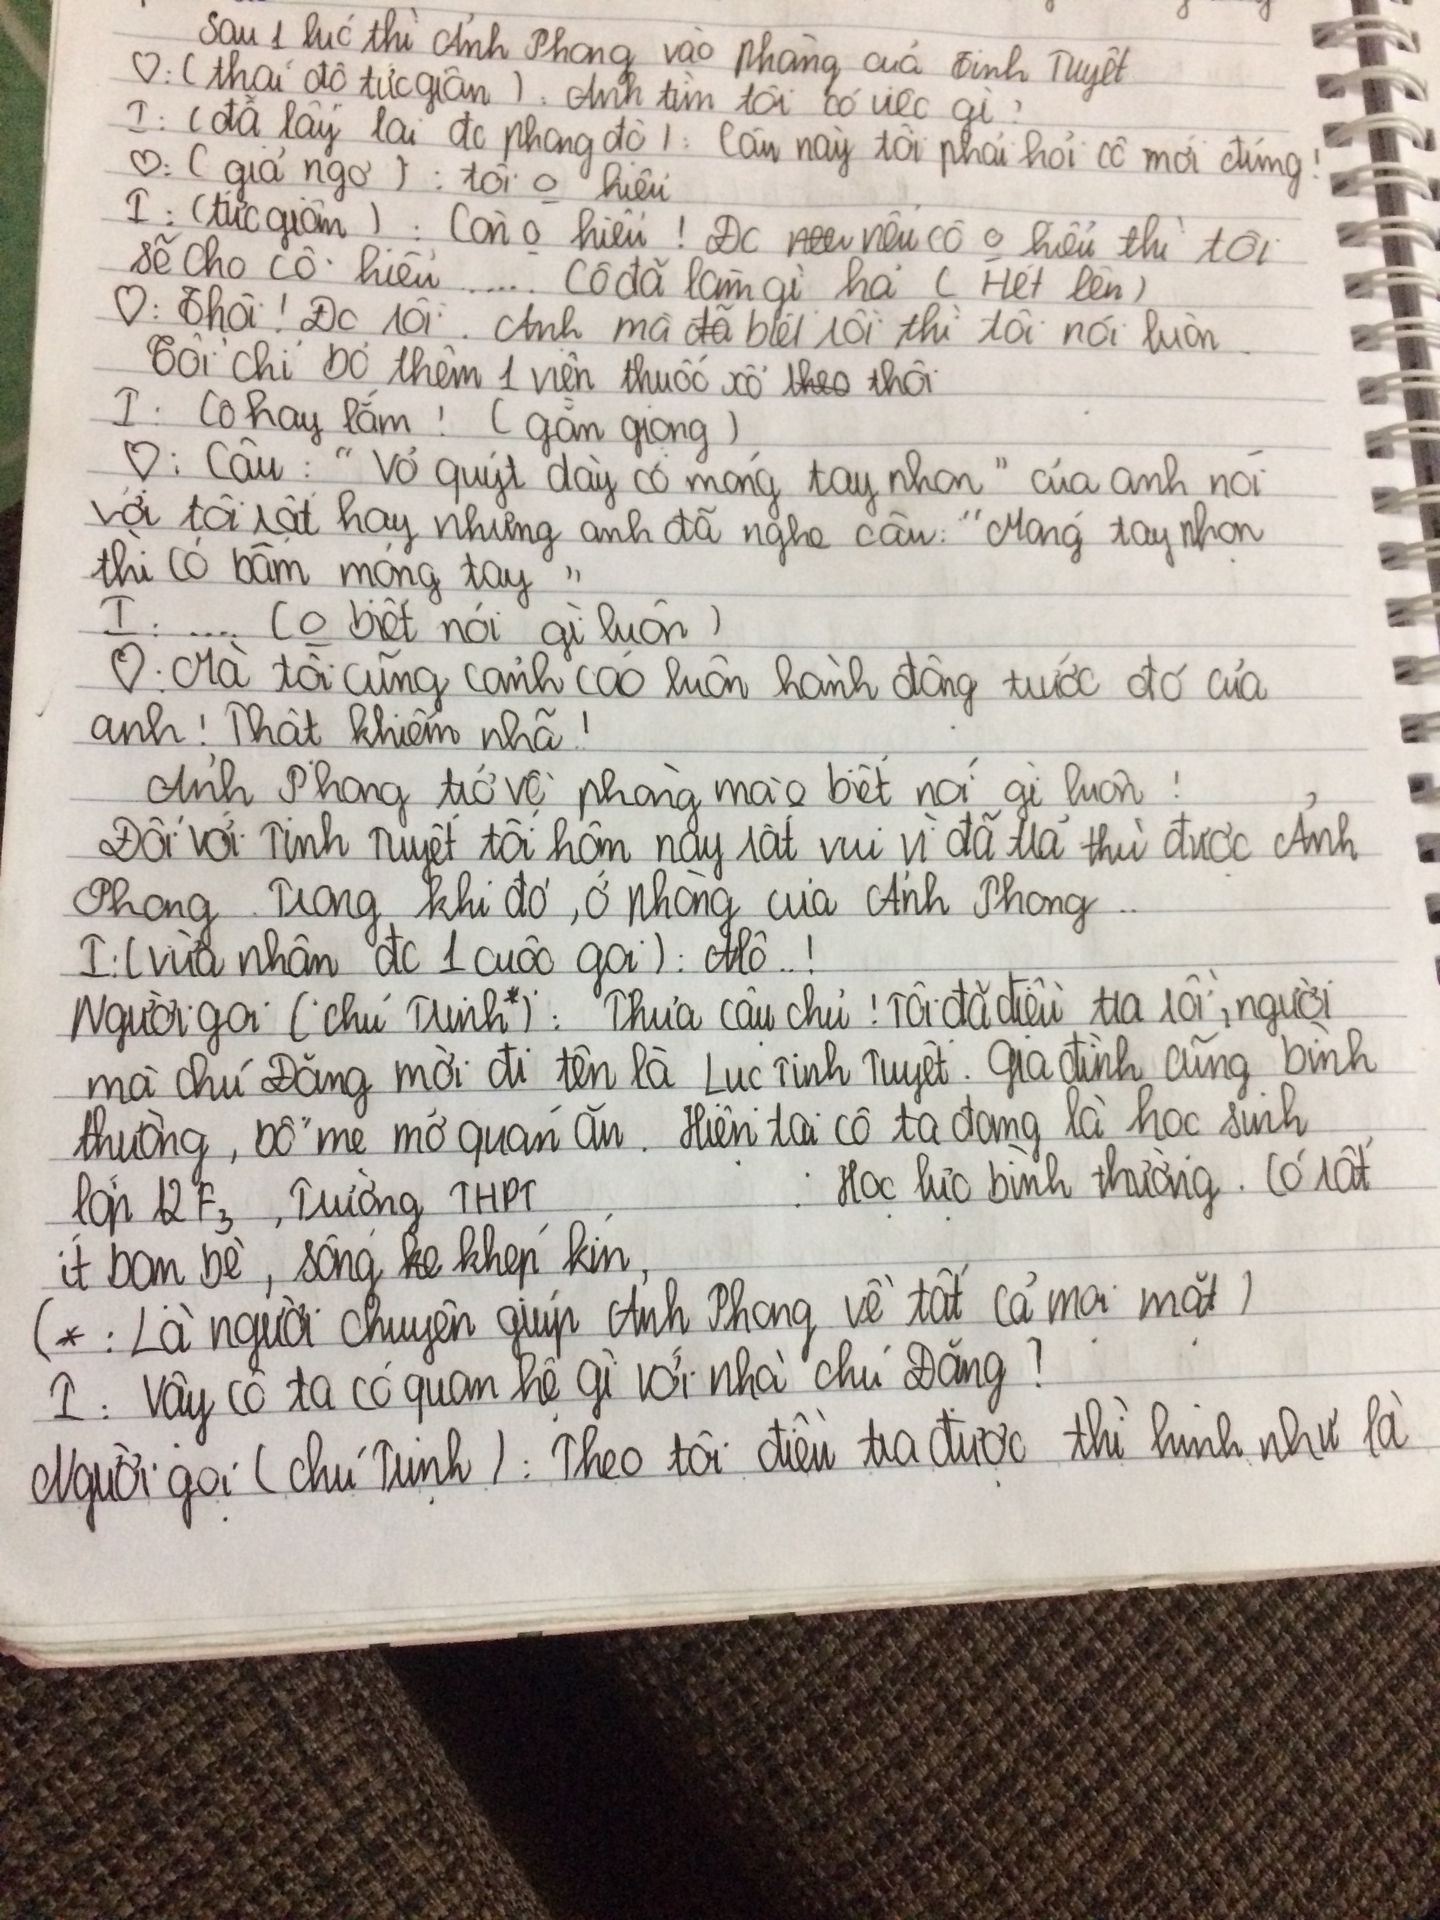 Sau 1 lúc thì Ảnh Phong vào phòng của Tinh Tuyết
♡: (thái độ tức giận): Anh tìm tôi có việc gì?
I: (đã lấy lại đc phong độ): Câu này tôi phải hỏi cô mới đúng!
♡: (giả ngơ): tôi o hiểu
I: (tức giận): Còn o hiểu! Đc nếu cô o hiểu thì tôi
sẽ cho cô hiểu ..... Cô đã làm gì hả (Hét lên)
♡: Thôi! Đc rồi. Anh mà đã biết rồi thì tôi nói luôn.
Tôi chỉ bỏ thêm 1 viên thuốc xổ theo thôi
I: Cô hay lắm! (gằn giọng)
♡: Câu: "Vỏ quýt dày có móng tay nhọn" của anh nói
với tôi rất hay nhưng anh đã nghe câu: "Móng tay nhọn
thì có bấm móng tay"
I: .... (o biết nói gì luôn)
♡: Mà tôi cũng cảnh cáo luôn hành động trước đó của
anh! Thật khiếm nhã!
Ảnh Phong trở về phòng mà o biết nói gì luôn!
Đối với Tinh Tuyết tối hôm nay rất vui vì đã trả thù được Ảnh
Phong. Trong khi đó, ở phòng của Ảnh Phong..
I: (vừa nhận đc 1 cuộc gọi): Alô..!
Người gọi (chú Trịnh*): Thưa cậu chủ! Tôi đã điều tra rồi, người
mà chú Đăng mời đi tên là Lục Tinh Tuyết. Gia đình cũng bình
thường, bố mẹ mở quán ăn. Hiện tại cô ta đang là học sinh
lớp 12F3, Trường THPT : Học lực bình thường. Có rất
ít bạn bè, sống ke khép kín,
(*: Là người chuyên giúp Ảnh Phong về tất cả mọi mặt)
I: Vậy cô ta có quan hệ gì với nhà chú Đăng?
Người gọi (chú Trịnh): Theo tôi điều tra được thì hình như là